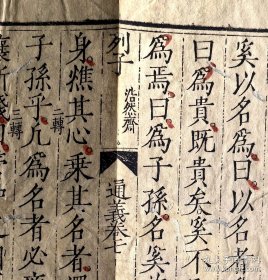 奚以名爲曰以名
曰爲貴既貴矣奚不
爲焉曰爲子孫名奚
浩然齋
列子
通義卷七
身燋其心乘其名者
二轉
子孫乎凡爲名者必
三轉
讓斯賤